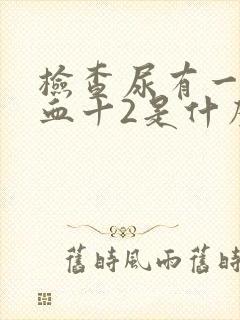 檢查尿有一
血十2是什
舊時風雨舊時